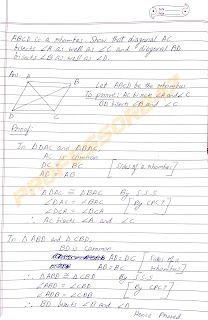 ABCD is a rhombus. Show that diagonal AC
bisects ∠A as well as ∠C and diagonal BD
bisects ∠B as well as ∠D.
Ans.
A B
D C
Let ABCD be the rhombus
To prove: AC bisects ∠A and ∠C
BD bisects ∠B and ∠C
Proof:
In △DAC and △BAC
AC is common
DC = BC [Sides of a rhombus]
AD = AB
∴ △DAC ≅ △BAC By S.S.S
∠DAC = ∠BAC [By CPCT]
∠DCA = ∠BCA
∴ AC bisects ∠A and ∠C
In △ABD and △CBD,
BD is common
AB = DC [Sides of a
AD = BC rhombus]
∴ △ABD ≅ △CBD By S.S.S
∠ABD = ∠CBD [By CPCT]
∠ADB = ∠CDB
∴ BD bisects ∠B and ∠D
Hence Proved